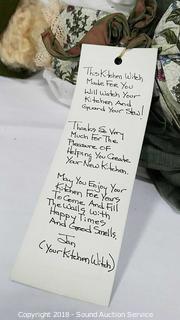 This Kitchen Witch
Made For You
Will Watch Your
Kitchen And
Guard Your Stew!
Thanks So Very
Much For The
Pleasure Of
Helping You Create
Your New Kitchen.
May You Enjoy Your
Kitchen For Years
To Come And Fill
The Walls With
Happy Times
And Good Smells.
Jan
(Your Kitchen Witch)
Copyright 2018 - Sound Auction Service